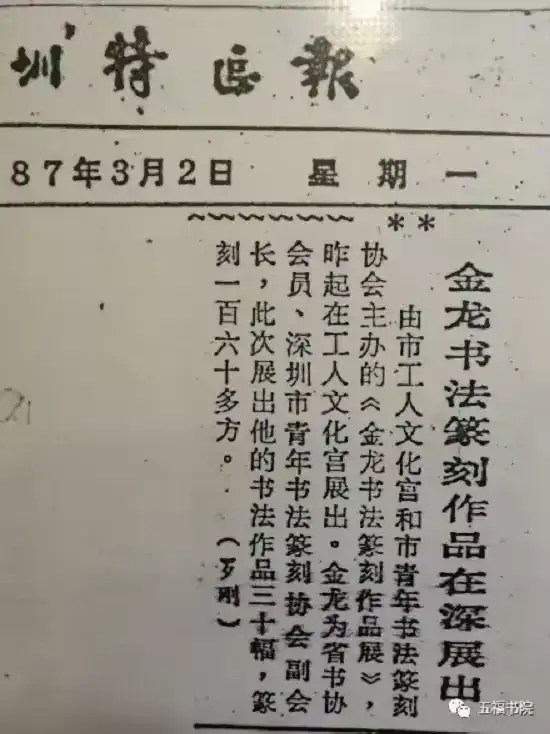 圳特区报
87年3月2日 星期一
金龙书法篆刻作品在深展出
由市工人文化宫和市青年书法篆刻
协会主办的《金龙书法篆刻作品展》，
昨起在工人文化宫展出。金龙为省书协
会员、深圳市青年书法篆刻协会副会
长，此次展出他的书法作品三十幅，篆
刻一百六十多方。 （罗刚）
五福书院